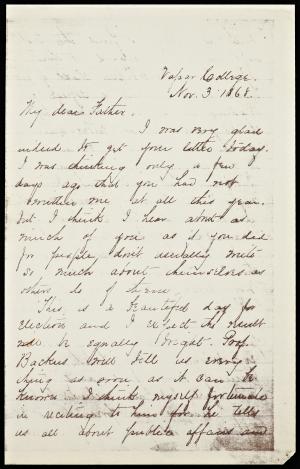 Vassar College.
Nov. 3. 1868
My dear Father.
I was very glad
indeed to get your letter today.
I was thinking only a few
days ago that you had not
written me at all this year.
but I think I hear about as
much of you as if you did
for people don't usually write
so much about themselves as
others do of them
This is a beautiful day for
election and I expect the result
will be equally bright. Prof.
Backus will tell us every
thing as soon as it can be
known. I think myself fortunate
in reciting to him for he tells
us all about public affairs and